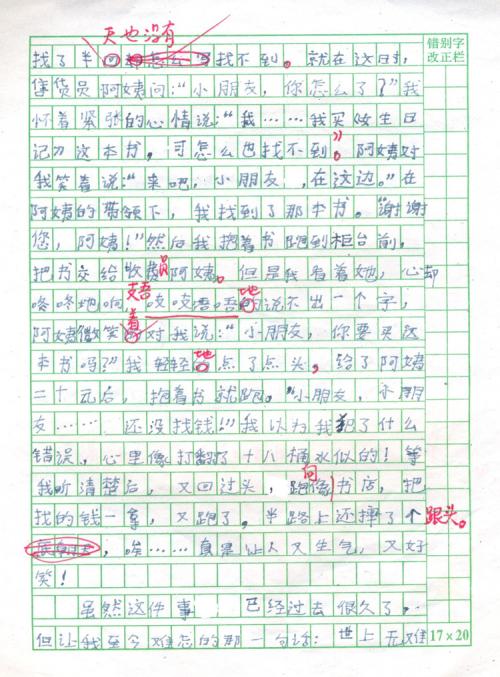 天也没有
找了半 找不到。就在这时，
错别字
改正栏
售货员阿姨问：“小朋友，你怎么了？”我
怀着紧张的心情说：“我……我买《女生日
记》这本书，可怎么也找不到。”阿姨对
我笑着说：“来吧，小朋友，在这边。”在
阿姨的带领下，我找到了那本书。“谢谢
您，阿姨！”然后我抱着书跑到柜台前，
把书交给收费员阿姨。但是我看着她，心却
咚咚地响，支支语语地说不出一个字，
阿姨微笑着对我说：“小朋友，你要买这
本书吗？”我轻轻地点了点头，给了阿姨
二十元后，抱着书就跑。“小朋友，小朋
友……还没找钱！”我以为我犯了什么
错误，心里像打翻了十八桶水似的！等
我听清楚后，又回过头，跑向书店，把
找的钱一拿，又跑了。半路上还摔了个跟头。
唉……真是让人又生气，又好
笑！
虽然这件事已经过去很久了，
但让我至今难忘的那一句话：世上无难
17×20